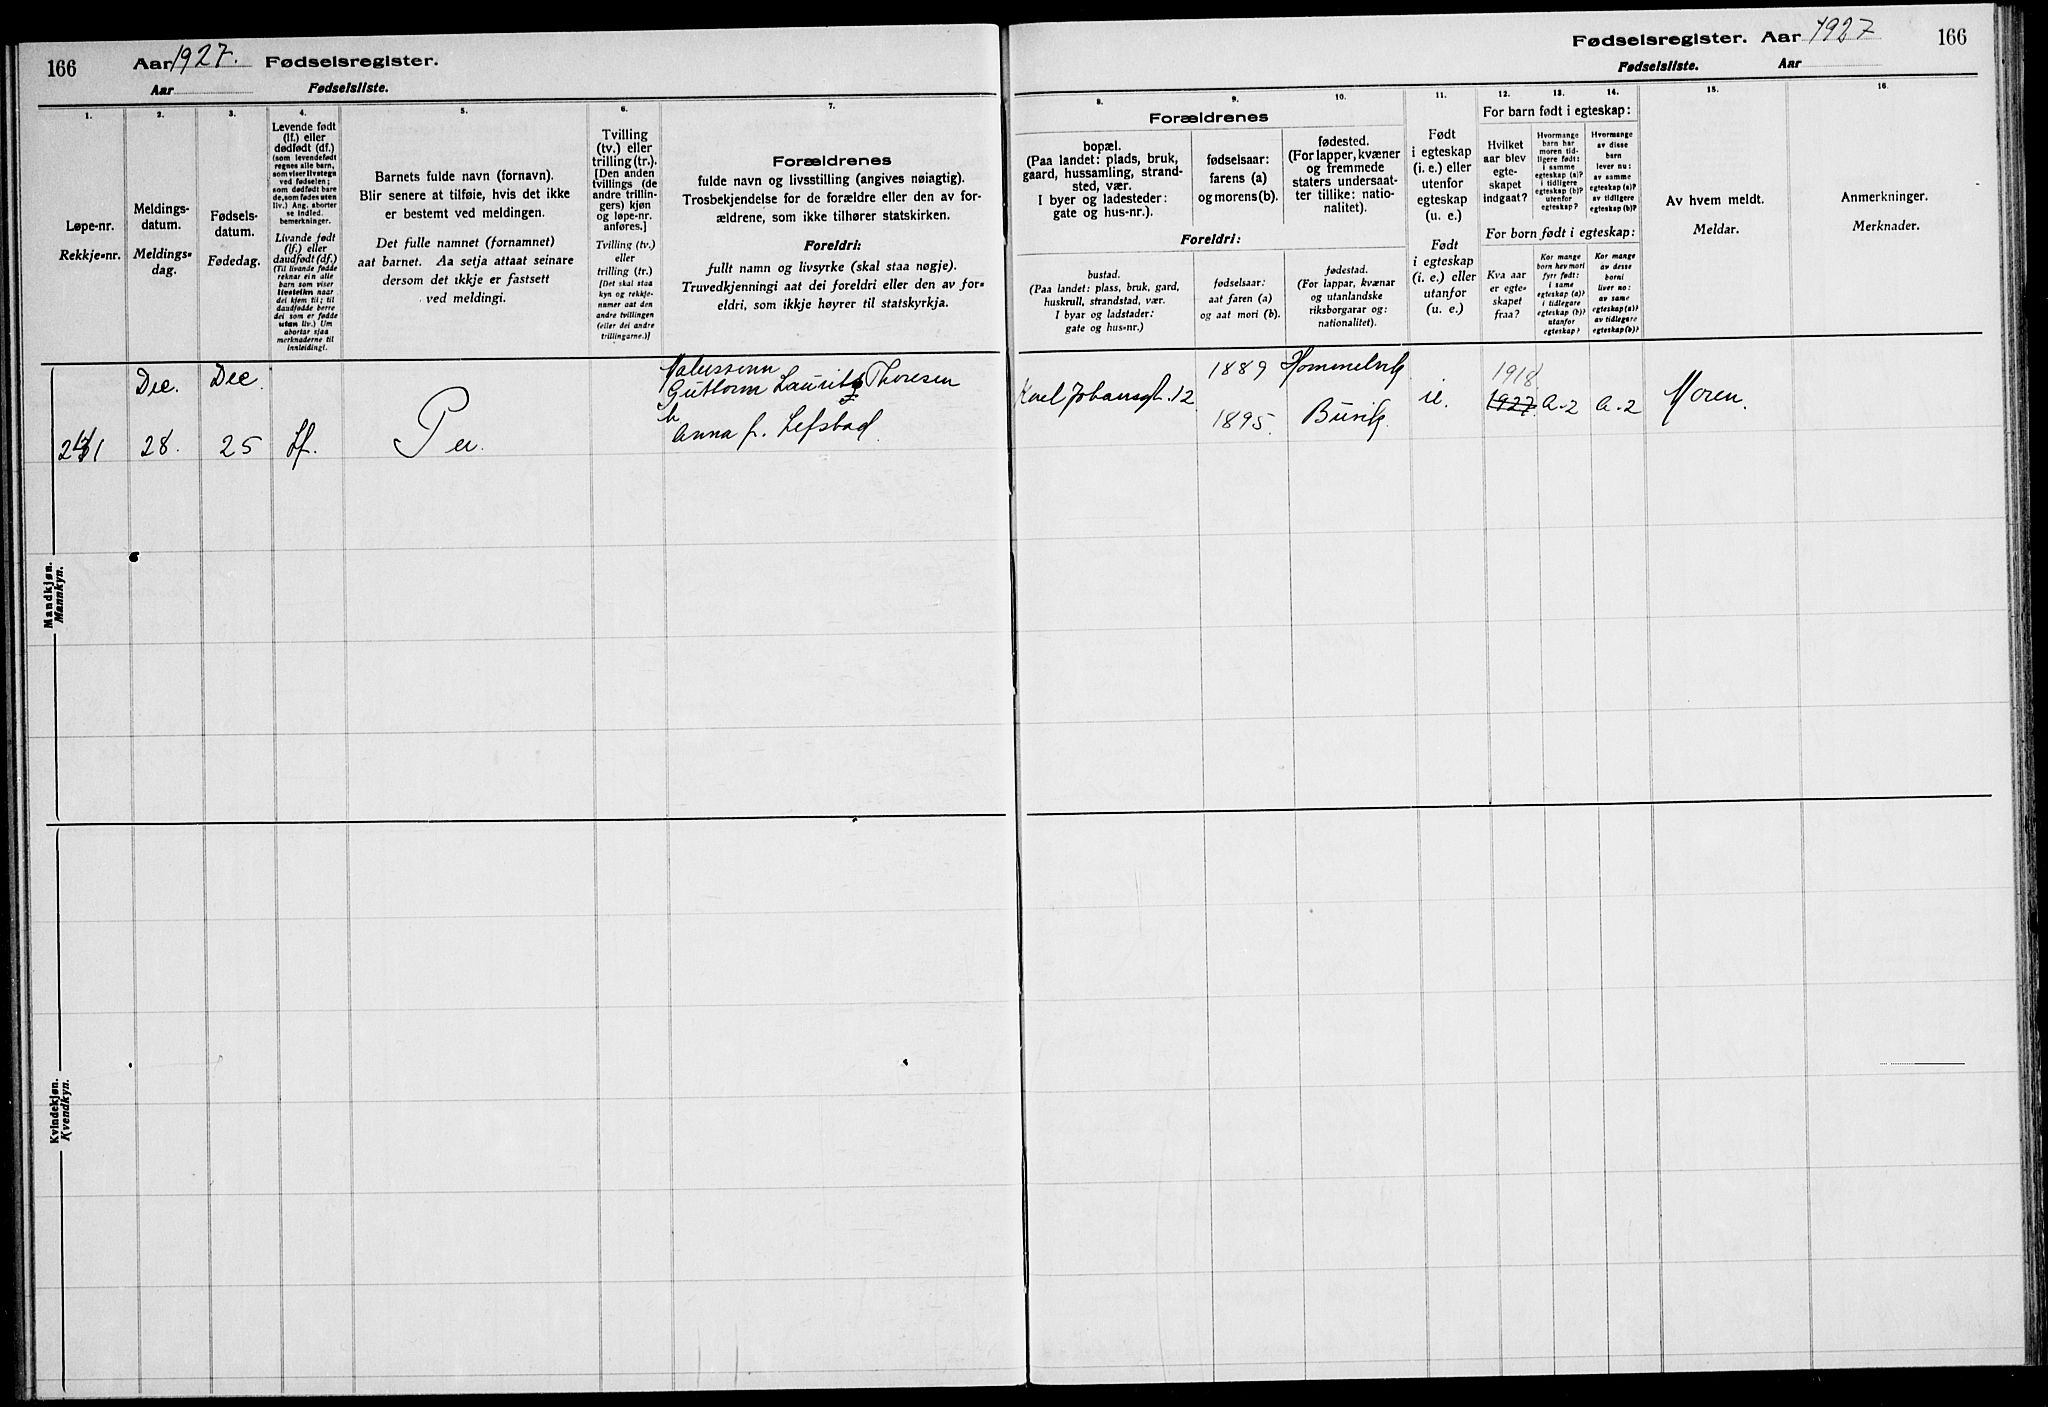 166
Aar 1927. Fødselsregister.
Aar Fødselsliste.
1.
2.
3.
4.
5.
6.
7.
Løpe-nr.
Rekkje-nr.
Meldings-
datum.
Meldings-
dag.
Fødsels-
datum.
Fødedag.
Levende født
(lf.) eller
dødfødt (df.)
(som levendefødt
regnes alle barn,
som viser livstegn
ved fødselen;
som dødfødt bare
de, som fødes uten
liv.) Ang. aborter
se indled.
bemerkninger.
Livande født
(lf.) eller
daudfødt (df.)
(Til livande fødde
reknar ein alle
barn som viser
livsteikn naar
dei kjem til; til
daudfødde berre
dei som er fødde
utan liv.) Um
abortar sjaa
merknaderne til
innleidingi.
Barnets fulde navn (fornavn).
Blir senere at tilføie, hvis det ikke
er bestemt ved meldingen.
Det fulle namnet (fornamnet)
aat barnet. Aa setja attaat seinare
dersom det ikkje er fastsett
ved meldingi.
Tvilling
(tv.) eller
trilling (tr.).
[Den anden
tvillings (de
andre trillin-
gers) kjøn
og løpe-nr.
anføres.]
Tvilling (tv.)
eller
trilling (tr.)
[Det skal staa
kyn og rekkje-
nummer aat den
andre tvillingen
(eller dei andre
trillingarne.)]
Forældrenes
fulde navn og livsstilling (angives nøiagtig).
Trosbekjendelse for de forældre eller den av for-
ældrene, som ikke tilhører statskirken.
Foreldri:
fullt namn og livsyrke (skal staa nøgje).
Truvedkjenningi aat dei foreldri eller den av for-
eldri, som ikkje høyrer til statskyrkja.
Dec. Dec.
28. 25 Lf. Per.
Guttorm Lauritz Thoresen
Anna f. Lefstad
Mandkjøn.
Mannkyn.
Kvindekjøn.
Kvendkyn.
Fødselsregister. Aar 1927 166
Fødselsliste. Aar
8.
9.
10.
11.
12.
13.
14.
15.
16.
Forældrenes
bopæl.
(Paa landet: plads, bruk,
gaard, hussamling, strand-
sted, vær.
I byer og ladesteder:
gate og hus-nr.).
fødselsaar:
farens (a)
og morens (b).
fødested.
(For lapper, kvæner
og fremmede
staters undersaat-
ter tillike: natio-
nalitet).
Foreldri:
bustad.
(Paa landet: plass, bruk, gard,
huskrull, strandstad, vær.
I byar og ladstader:
gate og hus-nr.)
fødselsaar:
aat faren (a)
og aat mori (b).
fødestad.
(For lappar, kvænar
og utanlandske
riksborgarar og:
nationalitet).
Født
i egteskap
(i. e.) eller
utenfor
egteskap
(u. e.)
Født
i egteskap
(i. e.) eller
utanfor
(u. e.)
For barn født i egteskap:
Hvilket
aar blev
egte-
skapet
indgaat?
Hvormange
barn har
moren tid-
ligere født:
i samme
egteskap (a)?
i tidligere
egteskap (b)?
utenfor
egteskap?
Hvormange
av disse
barn
lever nu:
av samme
egteskap (a)?
av tidligere
egteskap (b)?
For born født i egteskap:
Kva aar
er egte-
skapet
fraa?
Kor mange
born hev mori
fyrr født:
i same
egteskap (a)?
i tidlegare
egteskap (b)?
utanfor
egteskap?
Kor mange
av desse
borni
liver no:
av same
egteskap (a)?
av tidlegare
egteskap (b)?
Av hvem meldt.
Meldar.
Anmerkninger.
Merknader.
Karl Johansgt. 12
1889 Hommelvik
1895. Buvik.
i.e.
1918.
1927. a-2 a-2 Moren.